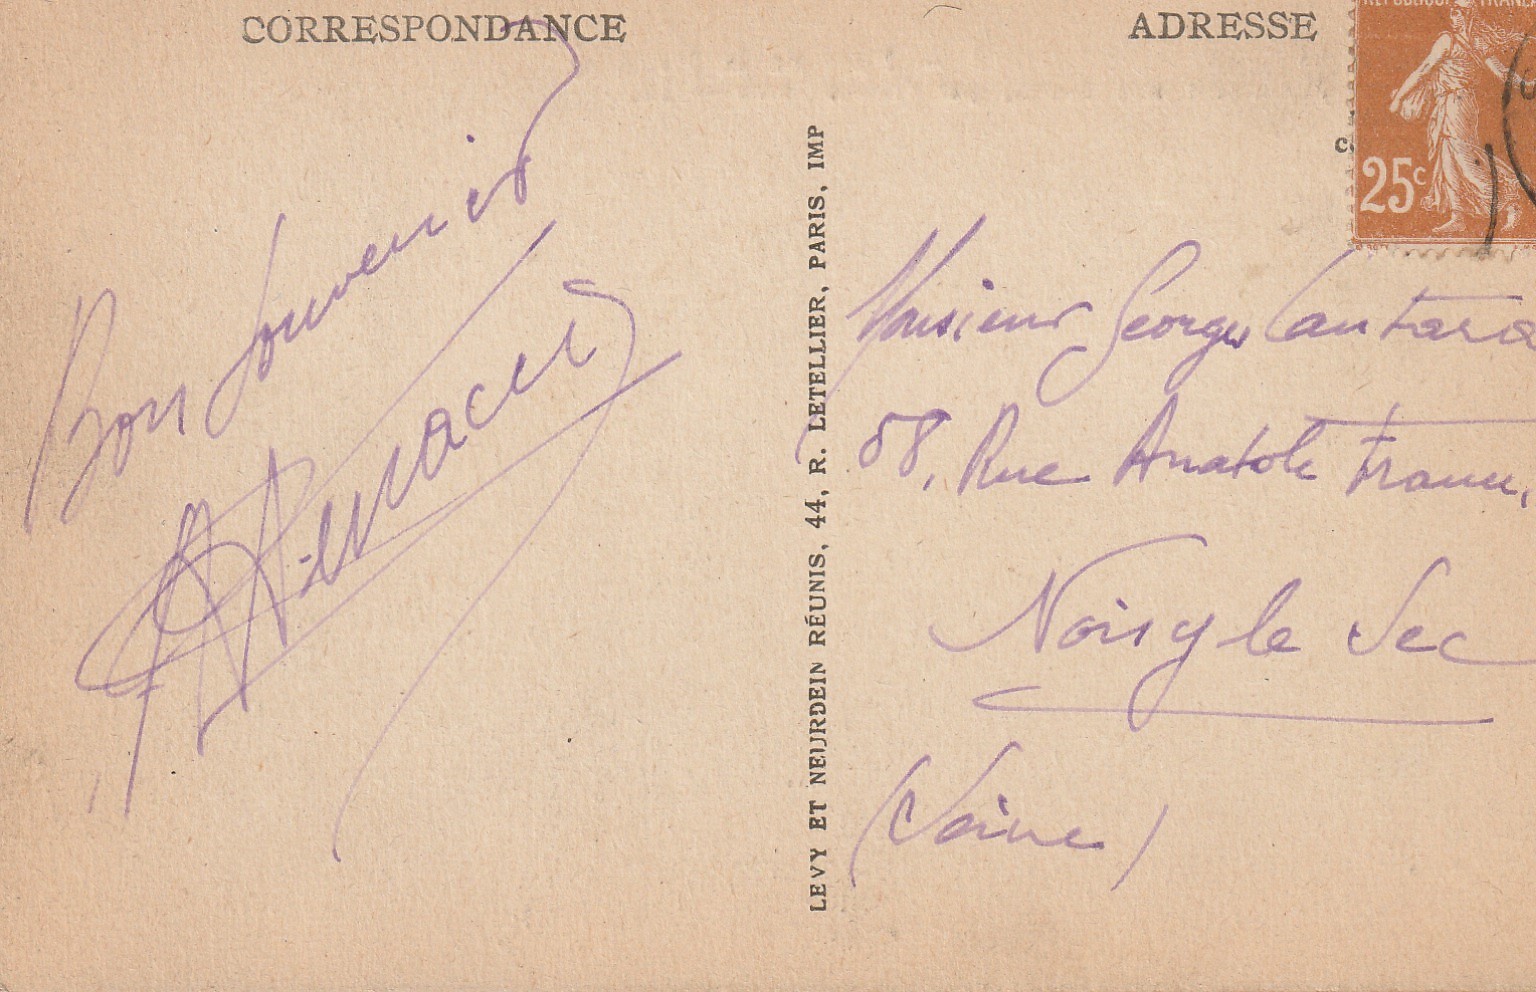 CORRESPONDANCE
Bon Souvenir
ADRESSE
RÉPUBLIQUE FRANÇA
25c
LEVY ET NEURDEIN RÉUNIS, 44, R. LETELLIER, PARIS, IMP
Monsieur Georges
58, Rue Anatole France,
Noisy le Sec
(Seine)